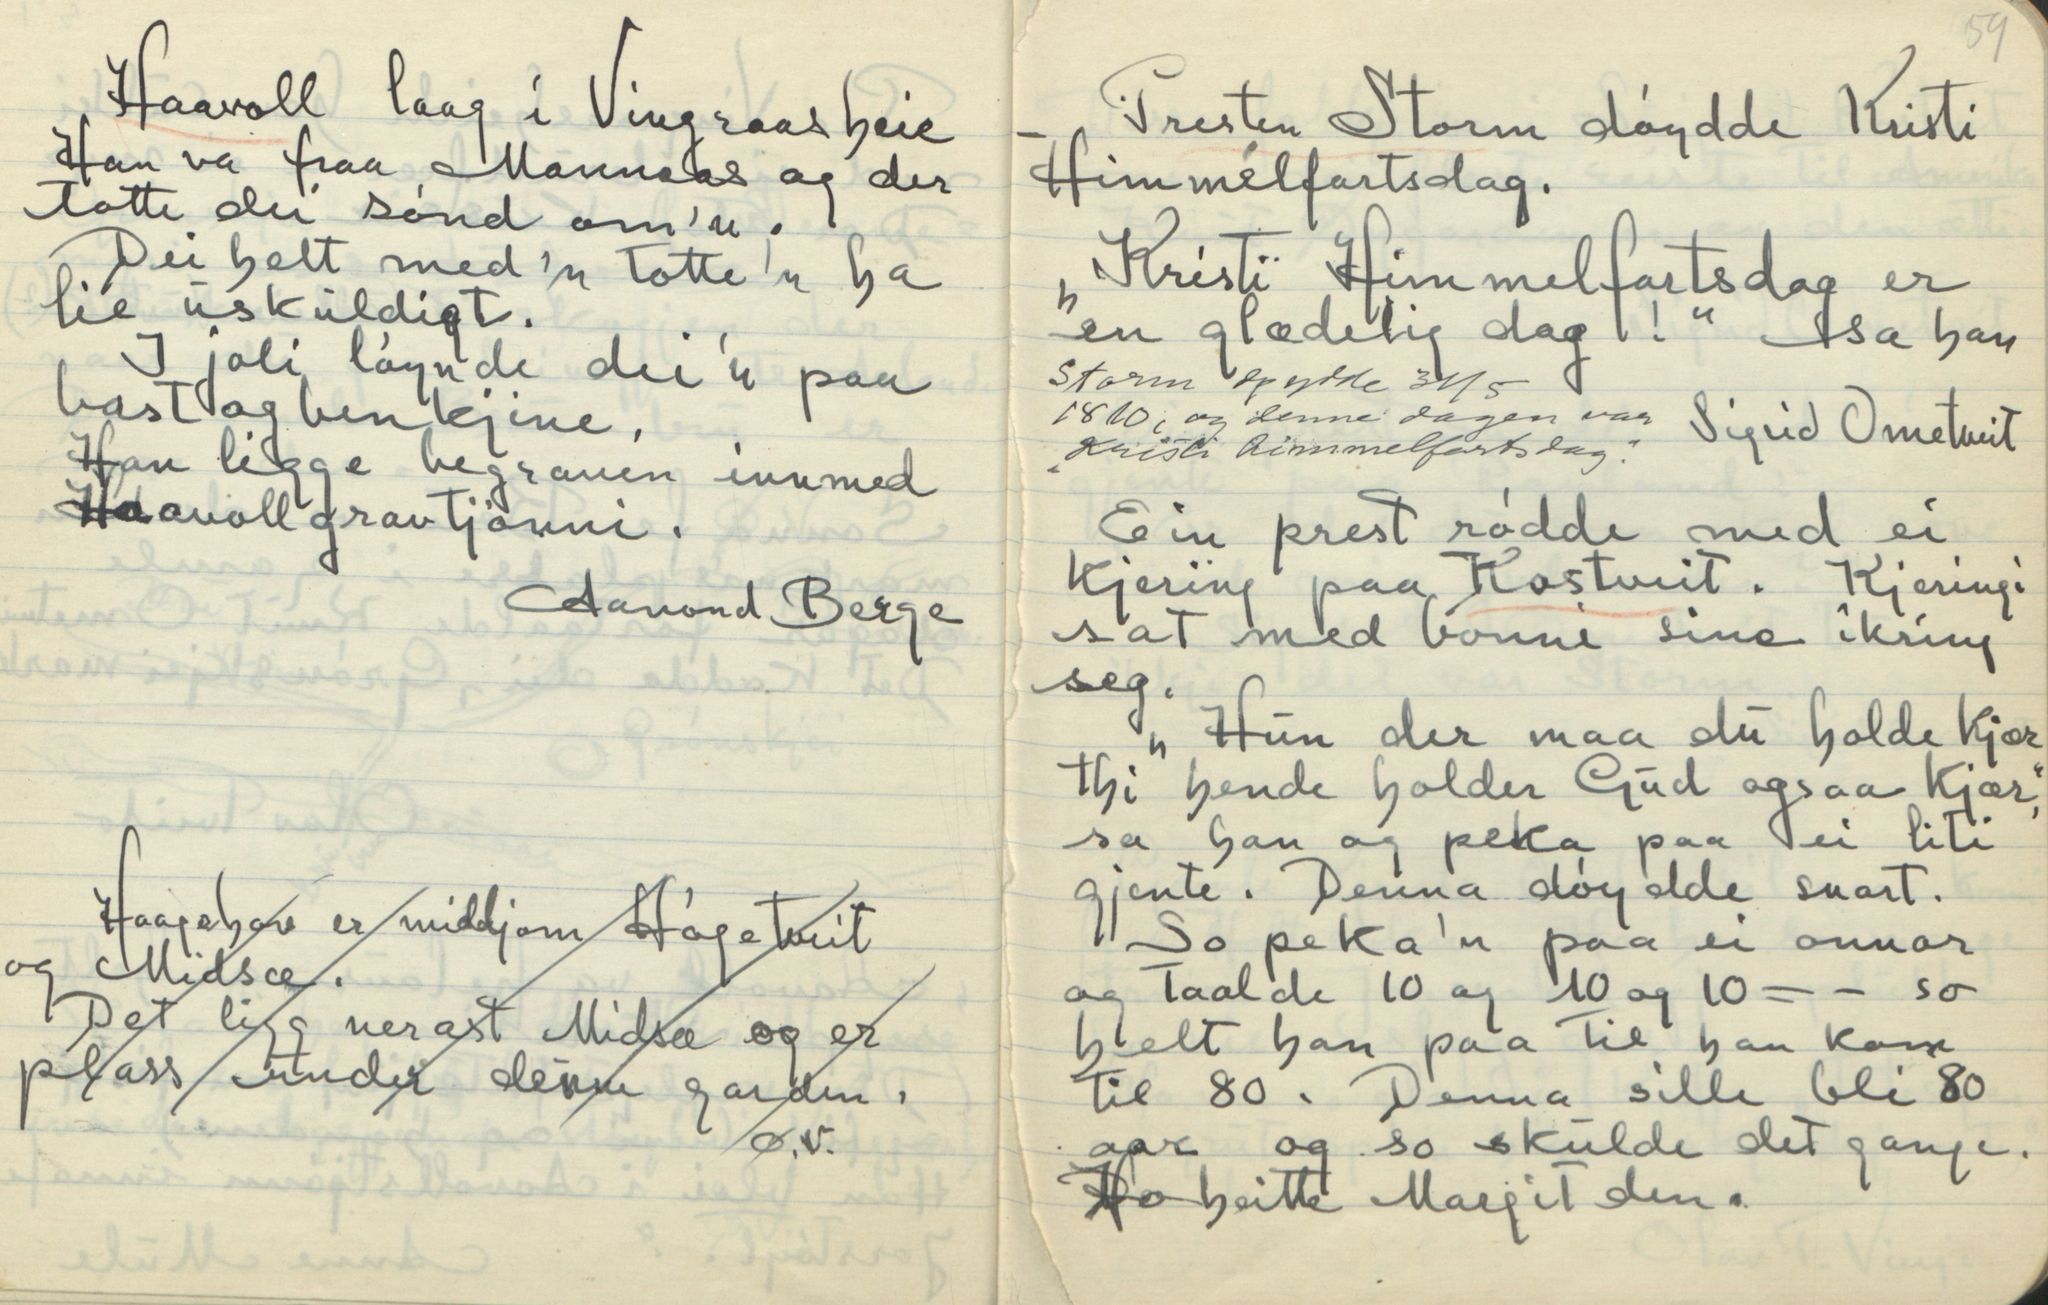 Haavoll laag i Vingraasheie
Han va fraa Mannaas og der
totte dei sónd om'n.
Dei helt med'n totte'n ha
lie uskuldigt.
I joli lóynde dei'n paa
bast og benkjine,
Han ligge begraven innmed
Haavollgravtjónni.
Aavond Berge
Haagehav er middjom Hógetveit
og Midsæ.
Det ligg nerast Midsæ og er
plass under denne garden.
Ø.V.
59
Presten Storm dóydde Kristi
Himmelfartsdag.
„Kristi Himmelfartsdag er
en glædelig dag!" sa han
Storm døydde 31/5
1810, og denne dagen var
„Kristi himmelfartsdag".
Sigrid Ometveit
Ein prestródde med ei
kjering paa Kostveit. Kjeringi
sat med bonni sine ikring
seg.
„Hun der maa du holde kjær
thi hende holder Gud ogsaa kjær",
sa han og peka paa ei liti
gjente. Denna dóydde snart.
So peka'n paa ei onnor
og taalde 10 og 10 og 10 = - - so
helt han paa til han kom
til 80. Denna sille bli 80
aar og so skulde det gange.
Ho heitte Margit den.